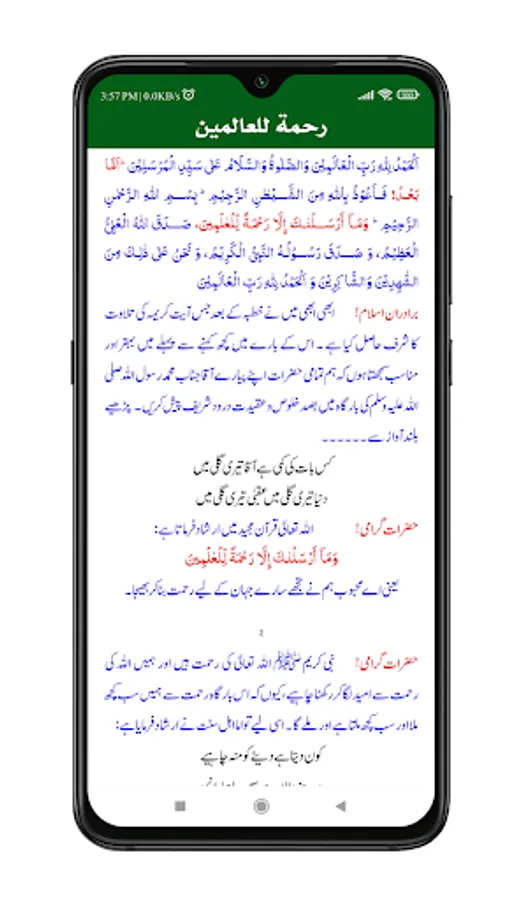 3:57 PM | 0.0KB/s
رحمة للعالمين
اَلْحَمْدُ لِلّٰہِ رَبِّ الْعَالَمِیْنَ وَالصَّلٰوۃُ وَالسَّلَامُ عَلٰی سَیِّدِ الْمُرْسَلِیْنَ ۔ اَمَّا
بَعْدُ! فَاَعُوْذُ بِاللّٰہِ مِنَ الشَّیْطٰنِ الرَّجِیْمِ ۔ بِسْمِ اللّٰہِ الرَّحْمٰنِ
الرَّحِیْمِ ۔ وَمَآ اَرْسَلْنٰکَ اِلَّا رَحْمَۃً لِّلْعٰلَمِیْنَ، صَدَقَ اللّٰہُ الْعَلِیُّ
الْعَظِیْمُ، وَ صَدَقَ رَسُوْلُہُ النَّبِیُّ الْکَرِیْمُ، وَ نَحْنُ عَلٰی ذٰلِکَ مِنَ
الشّٰھِدِیْنَ وَالشَّاکِرِیْنَ وَ الْحَمْدُ لِلّٰہِ رَبِّ الْعَالَمِیْنَ
برادران اسلام! ابھی ابھی میں نے خطبہ کے بعد جس آیت کریمہ کی تلاوت
کا شرف حاصل کیا ہے ۔ اس کے بارے میں کچھ کہنے سے پہلے میں بہتر اور
مناسب سمجھتا ہوں کہ ہم تمامی حضرات اپنے پیارے آقا جناب محمد رسول اللہ صلی
اللہ علیہ وسلم کی بارگاہ میں بصد خلوص و عقیدت درود شریف پیش کریں ۔ پڑھیے
بلند آواز سے ۔۔۔۔۔۔
کس بات کی کمی ہے آقا تیری گلی میں
دنیا تیری گلی میں عقبیٰ تیری گلی میں
حضرات گرامی! اللہ تعالیٰ قرآن مجید میں ارشاد فرماتا ہے:
وَمَآ اَرْسَلْنٰکَ اِلَّا رَحْمَۃً لِّلْعٰلَمِیْنَ
یعنی اے محبوب ہم نے تجھے سارے جہان کے لیے رحمت بنا کر بھیجا ۔
2
حضرات گرامی! نبی کریم ﷺ اللہ تعالیٰ کی رحمت ہیں اور ہمیں اللہ کی
رحمت سے امید لگا کر رکھنا چاہیے، کیوں کہ اس بارگاہ رحمت سے ہمیں سب کچھ
ملا اور سب کچھ ملتا ہے اور ملے گا ۔ اسی لیے تو امام اہل سنت نے ارشاد فرمایا ہے:
کون دیتا ہے دینے کو منہ چاہیے